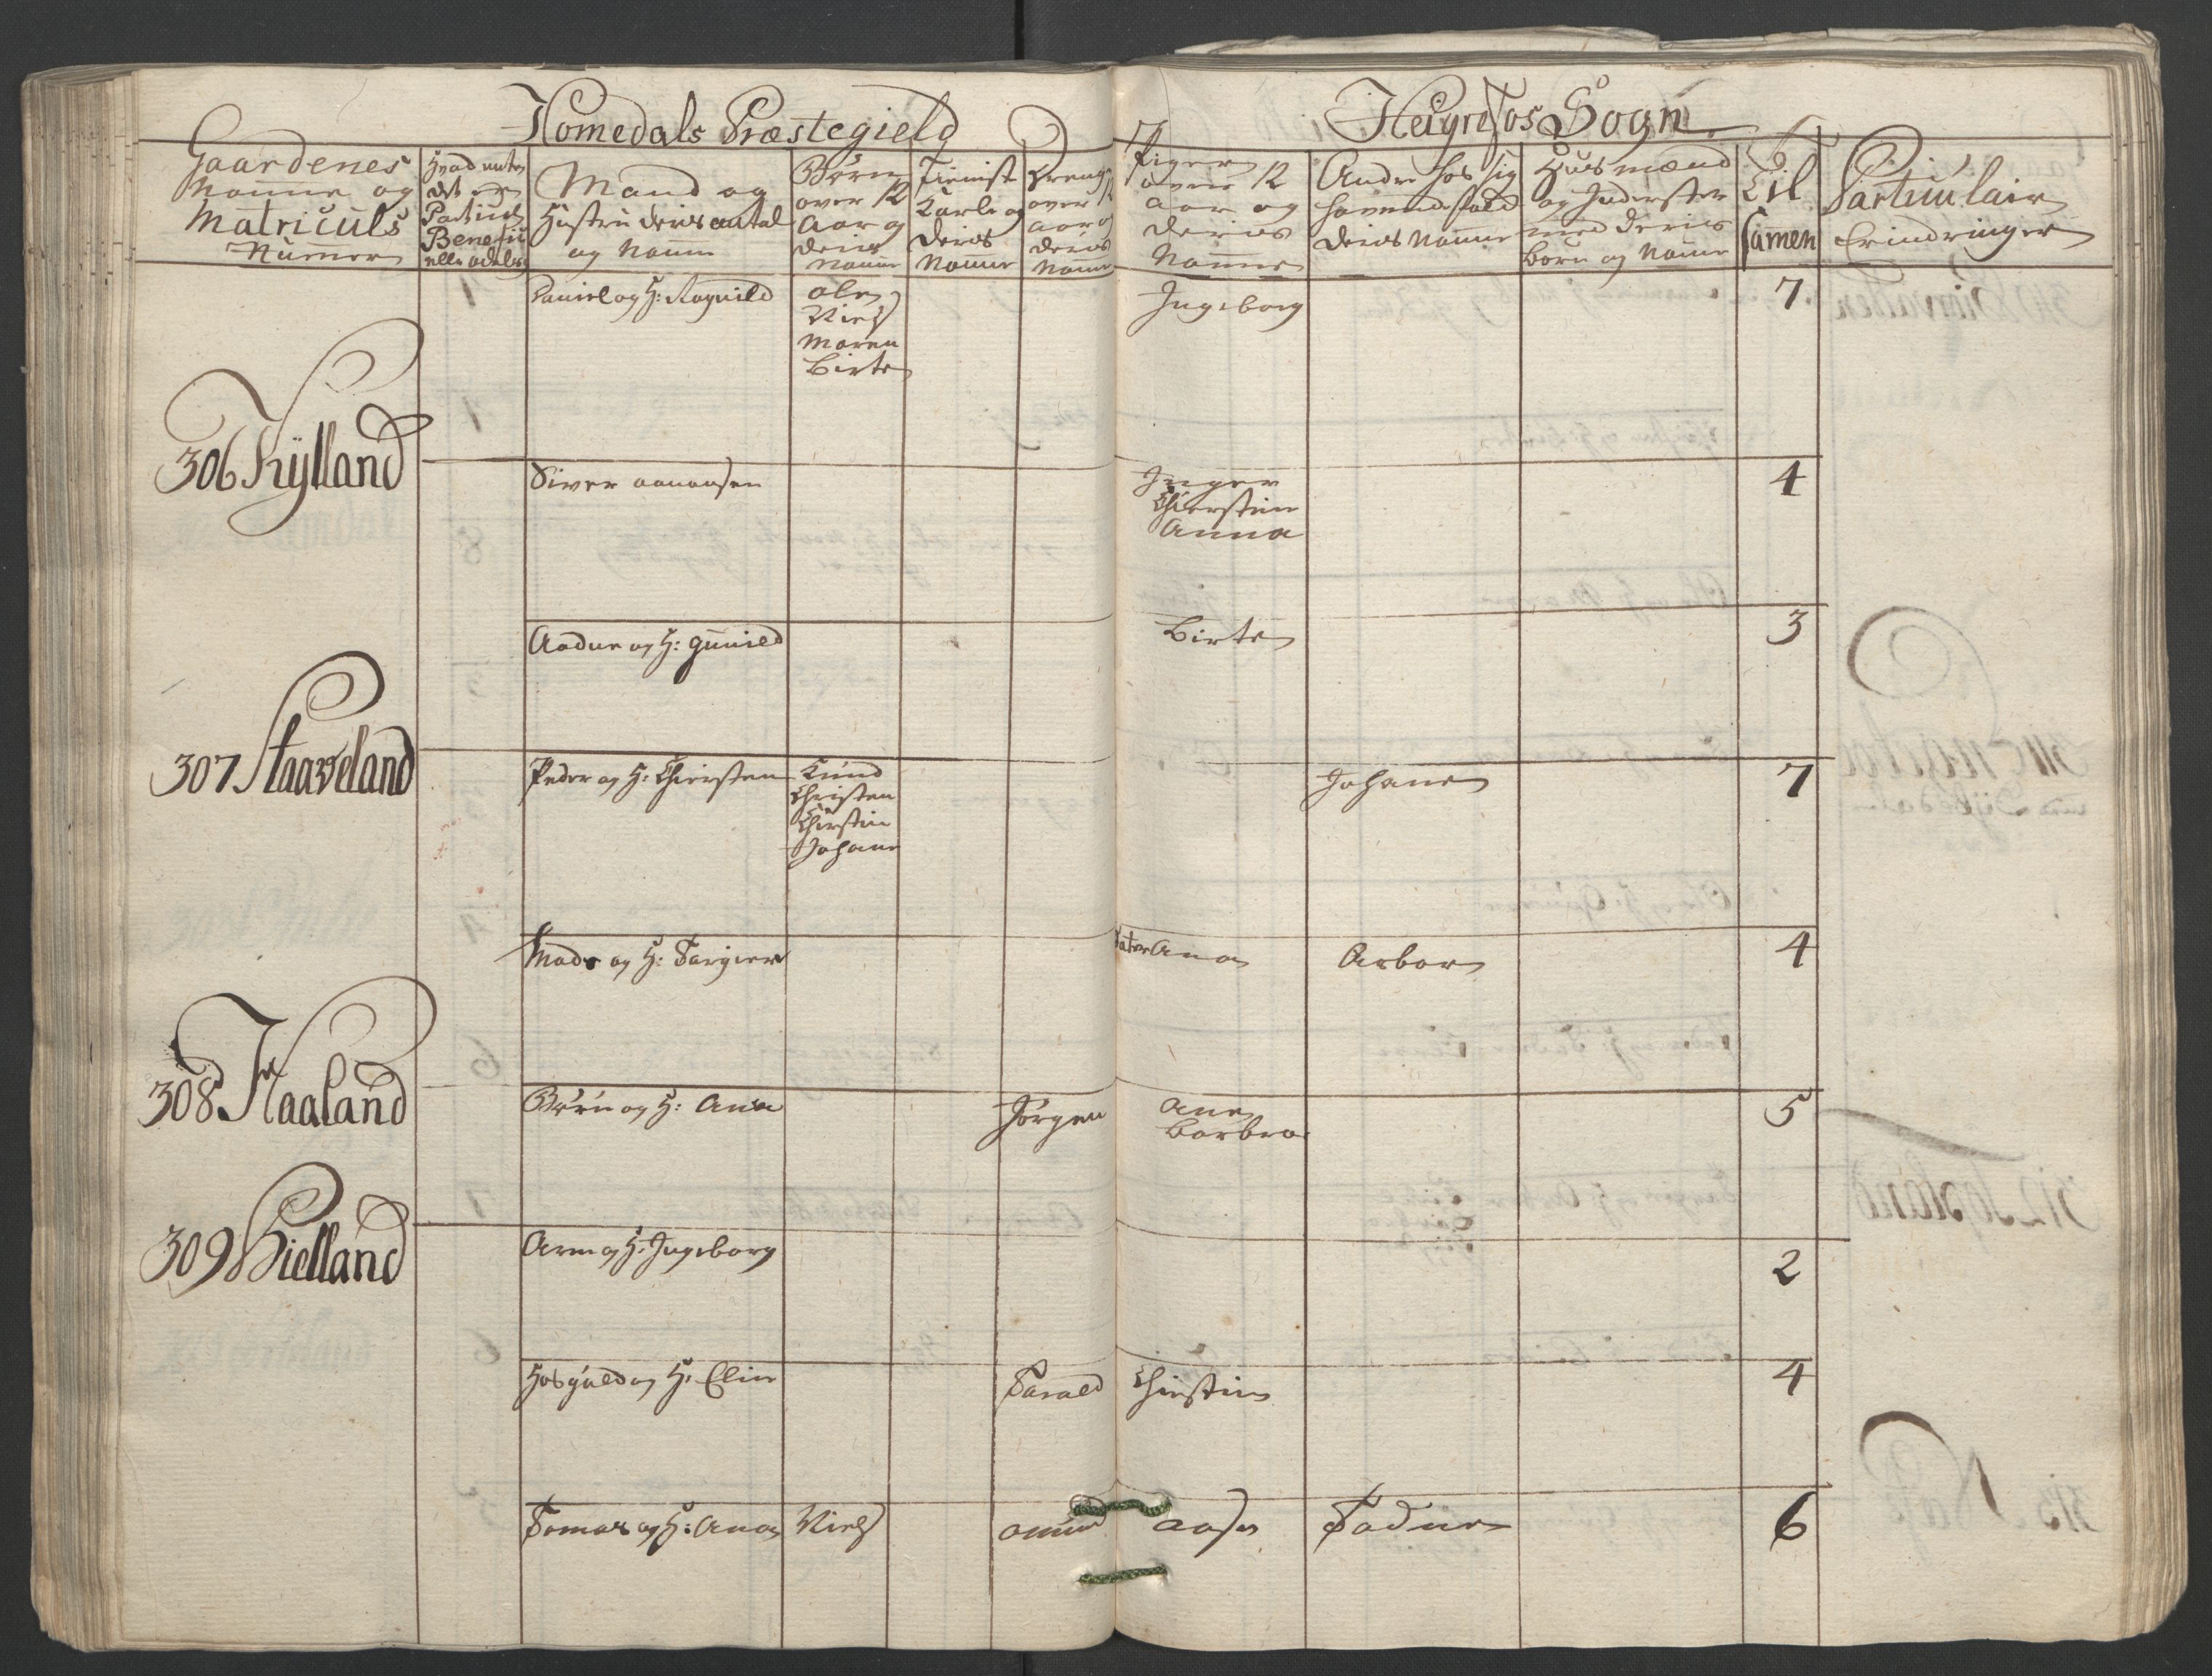 Homedals Præstegield
Heigrefos Sogn
Gaardenes
Nafne og
Matriculs
Numer
Hvad enten
det er
Particul:
Benefic:
elle odels
Mand og
Hustru deris antal
og Nafne
Børn
over 12
Aar og
deris
Nafne
Tieniste
Karle og
deris
Nafne
Drenge
over 12
aar og
deris
Nafne
Piger
over 12
aar og
deris
Nafne
Andre hos sig
havende folk
deris Nafne
Huusmænd
og Inderster
med deris
børn og Nafne
Til
samen
Particulair
Erindringer
Daniel og H: Ragnild
ole
Niels
Maren
Birte
Ingeborg
7
306 Kÿlland
Siver
Inger
Chirstin
Anna
4
Aadne og H: gunild
Birte
3
307 Staaveland
Peder og H: Chirsten
Knud
Christen
Chirstin
Johane
Johane
7
Mads og H: Targier
datter Ana
Asbor
4
308 Haaland
Biørn og H: Ana
Jørgen
ane
barbra
5
309 Hielland
Arn og H: Ingeborg
2
H: Elin
Tarald
Chirstin
4
Tomas og H: Ana
Niels
omund
aase
Tadne
6